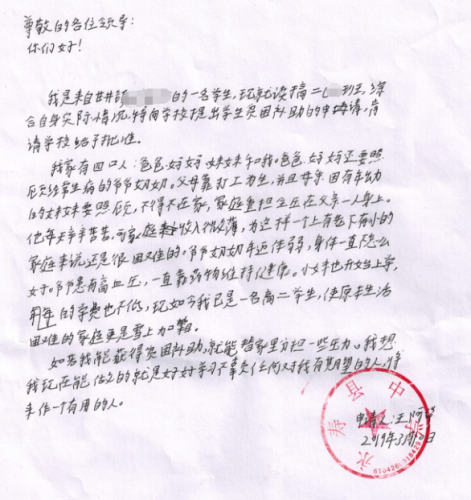 尊敬的各位领导：
你们好！
我是来自甘井镇的一名学生，现就读于高二班，综
合自身实际情况，特向学校提出学生贫困补助的申请，肯
请学校给予批准。
我家有四口人：爸爸妈妈妹妹和我。爸爸妈妈还要照
顾经常生病的爷爷奶奶。父母靠打工为生，并且母亲因有年幼
的妹妹要照顾，不得不在家，家庭重担全压在父亲一人身上。
他每天辛辛苦苦，可家庭收入微薄，为这样一个上有老下有小的
家庭来说还是很困难的。爷爷奶奶年近体弱，身体一直不怎么
好。爷爷患有高血压，一直靠药物维持健康。小妹也开始上学，
的学费也不低，现如今我已是一名高二学生，使原本生活
困难的家庭更是雪上加霜。
如若我能获得贫困补助，就能替家里分担一些压力。我想
我现在能做的就是好好学习不辜负任何对我有期望的人，将
来作一个有用的人。
申请人：王阿
2019年3月日
永寿县中学